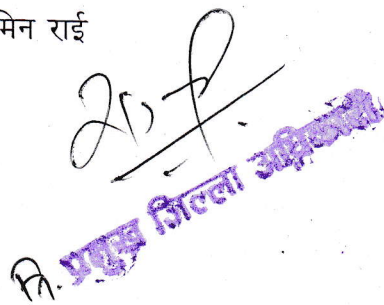 मिन राई
नि. प्रमुख जिल्ला अधिकारी